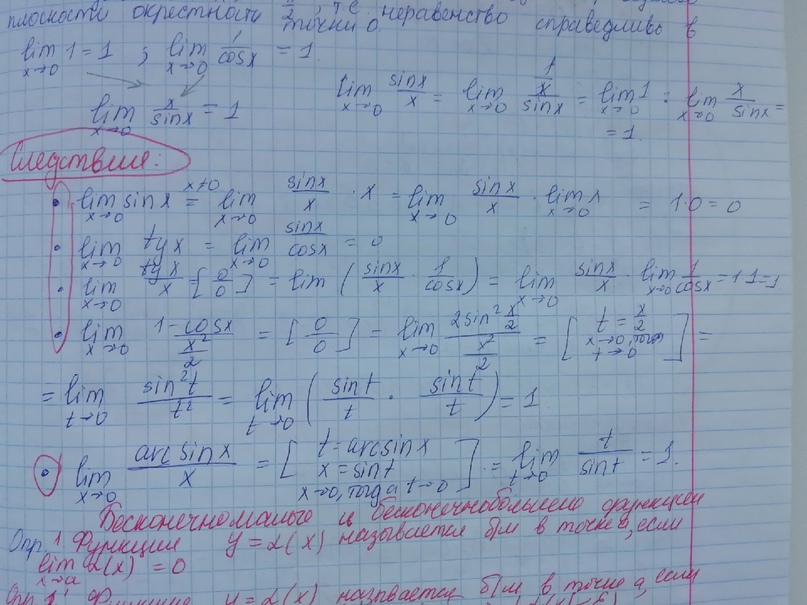 плоскости окрестности π/2, т.е. неравенство справедливо в
точки 0.
lim x→0 1 = 1 ; lim x→0 1/cosx = 1.
lim x→0 x/sinx = 1
lim x→0 sinx/x = lim x→0 1/(x/sinx) = lim x→0 1 : lim x→0 x/sinx =
= 1.
Следствия:
• lim x→0 sinx = x≠0 lim x→0 sinx/x · x = lim x→0 sinx/x · lim x→0 x = 1·0 = 0
• lim x→0 tgx = lim x→0 sinx/cosx = 0
• lim x→0 tgx/x = [0/0] = lim (sinx/x · 1/cosx) = lim x→0 sinx/x · lim x→0 1/cosx = 1·1=1
• lim x→0 (1-cosx)/(x²/2) = [0/0] = lim x→0 (2sin² x/2)/(x²/2) = [t = x/2 x→0, тогда t→0] =
= lim t→0 sin²t/t² = lim t→0 (sint/t · sint/t) = 1
• lim x→0 arcsinx/x = [t=arcsinx x=sint x→0, тогда t→0] = lim t→0 t/sint = 1.
Бесконечномалые и бесконечнобольшие функции
Опр.1 Функция y=α(x) называется б/м в точке a, если
lim x→a α(x) = 0
Опр 1' y=α(x) называется б/м в точке a, если